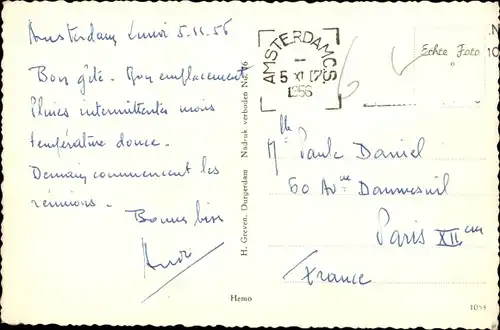 Amsterdam Lundi 5.11.56
Bon gîte. Bon emplacement
Pluies intermittentes mais
température douce.
Demain commencent les
réunions.
Bonnes bises
H. Greven, Durgerdam Nadruk verboden No. 76
AMSTERDAM CS
5 XI 17
1956
Echte Foto
Mlle Paule Daniel
60 Avnue Daumesnil
Paris XIIem
France
Hemo